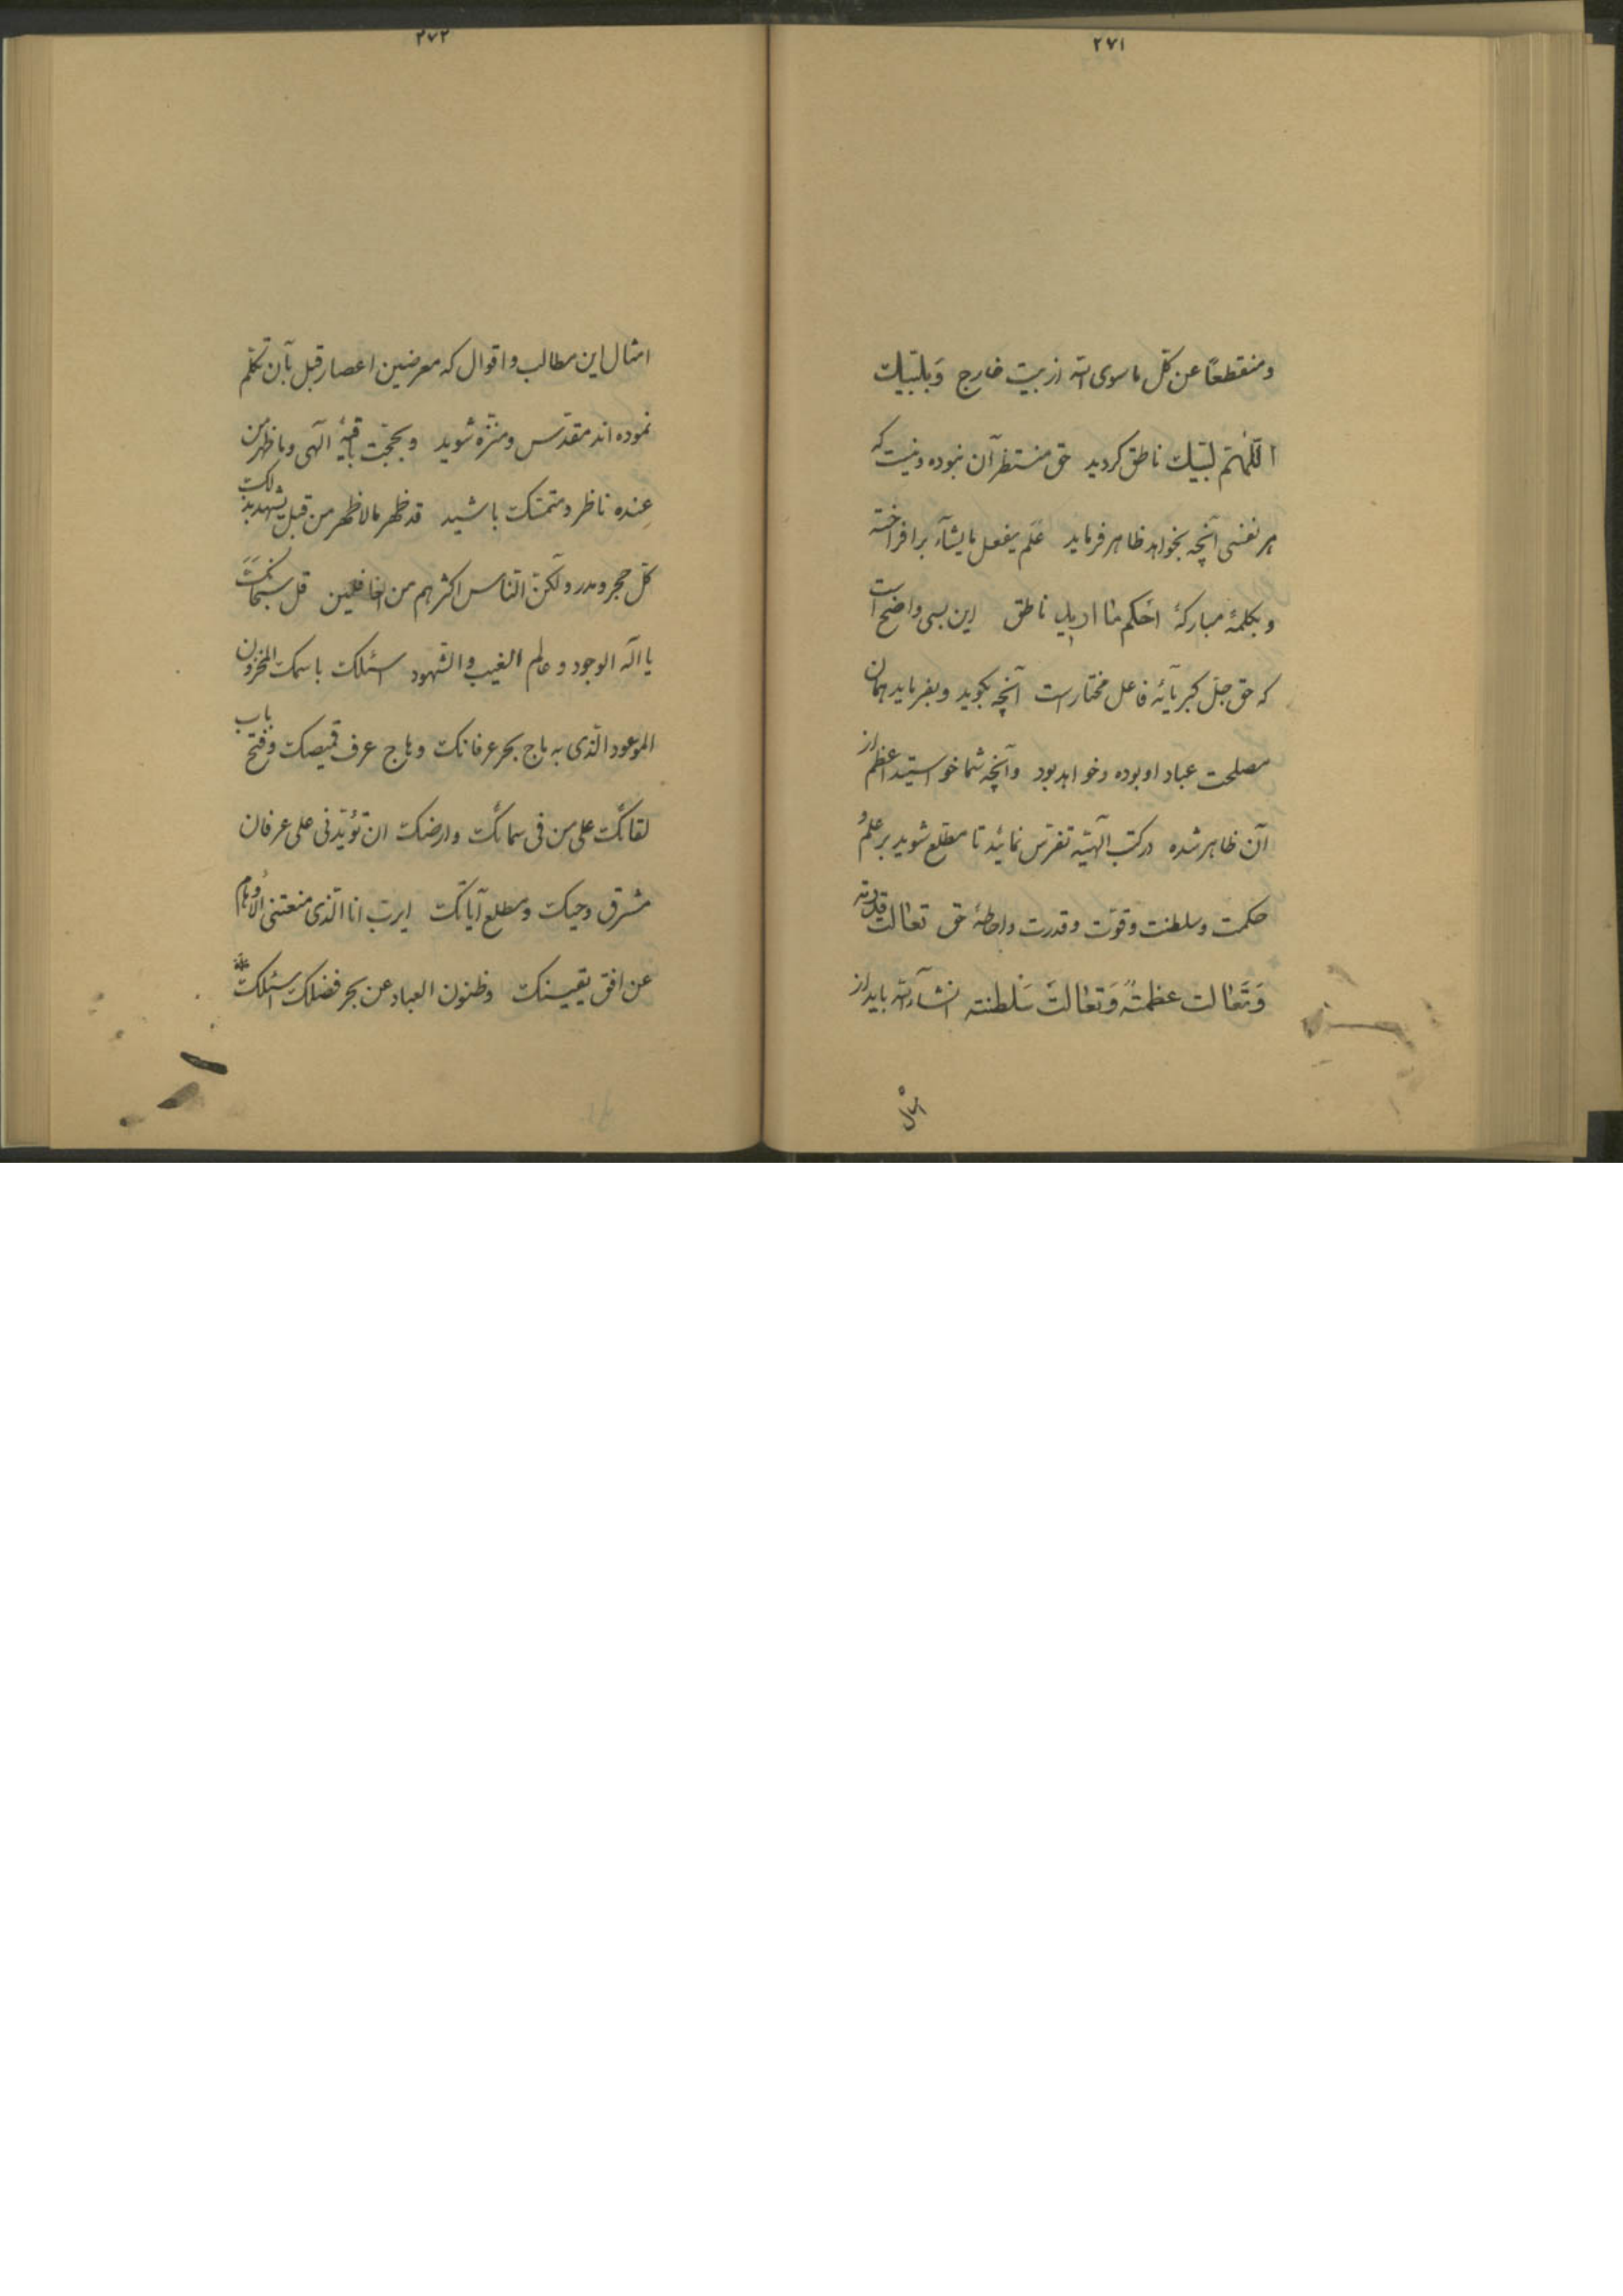 ٢٧١
ومنقطعًا عن كلّ ما سوی الله از بیت خارج وَبلبّیك
اللّهُمّ لبّیك ناطق گردید حق منتظر آن نبوده و نیست که
هر نفسی آنچه بخواهد ظاهر فرماید عَلَم یفعل ما یشآء برافراخته
و بکلمهٔ مبارکهٔ احکم ما ارید ناطق این بسی واضح است
که حق جلّ کبریائه فاعل مختار است آنچه بگوید و بفرماید همان
مصلحت عباد او بوده و خواهد بود و آنچه شما خواستید اعظم از
آن ظاهر شده در کتب الهیّه تفرّس نمائید تا مطّلع شوید بر علم و
حکمت و سلطنت و قوّت و قدرت و احاطهٔ حق تعالت قدرته
وَتَعٰالت عظمتهُ وَتعٰالتْ سَلطنته انشآءالله باید از
امثال
٢٧٢
امثال این مطالب و اقوال که معرضین اعصار قبل بآن تکلّم
نموده اند مقدّس و منزّه شوید و بحجّت باقیهٔ الهی و ما ظهر من
عنده ناظر و متمسّک باشید قد ظهر ما لا ظهر من قبل یشهد بذلک
کلّ حجر و مدر ولکنّ النّاس اکثرهم من الغافلین قل سبحانک
یا اله الوجود و عالم الغیب و الشّهود اسئلک باسمک المخزون
الموعود الّذی به ماج بحر عرفانک و هاج عرف قمیصک و فتح باب
لقائک علی من فی سمائک و ارضک ان تؤیّدنی علی عرفان
مشرق وحیک و مطلع آیاتک ایربّ انا الّذی منعتنی الأوهام
عن افق یقینک و ظنون العباد عن بحر فضلک اسئلک